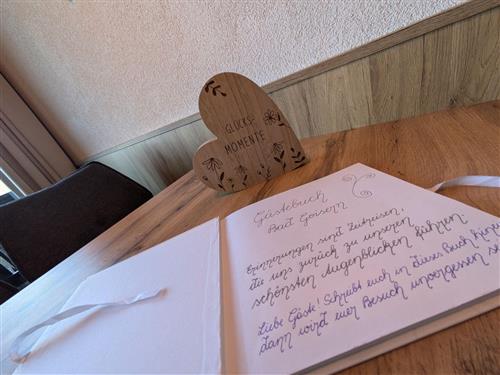 GLÜCKS-
MOMENTE
Gästebuch
Bad Goisern
Erinnerungen sind Zeitreisen,
die uns zurück zu unseren
schönsten Augenblicken führen
Liebe Gäste! Schreibt euch in dieses Buch hinein
dann wird euer Besuch unvergessen